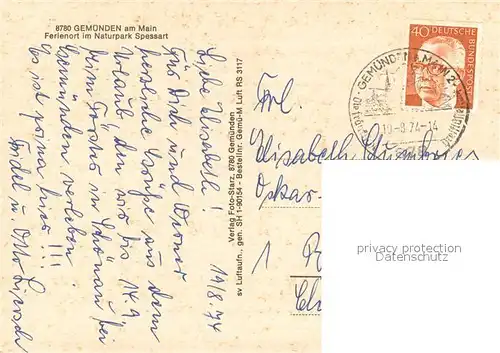 8780 GEMÜNDEN am Main
Ferienort im Naturpark Spessart
19/8.74
Liebe Elisabeth!
Für Dich und Werner
herzliche Grüße aus dem
Urlaub, den wir bis 14.9.
beim Forster in Schönau bei
Gemünden verleben.
Es ist prima hier!!!
Verlag Foto-Starz, 8780 Gemünden
SH 1-90154 - Bestellnr. Gemü-M Luft RS 3117
sv Luftaufn., gen.
40
DEUTSCHE BUNDESPOST
GEMÜNDEN
19.-8.74-14
Frl.
Elisabeth
Oskar-
1
privacy protection
Datenschutz